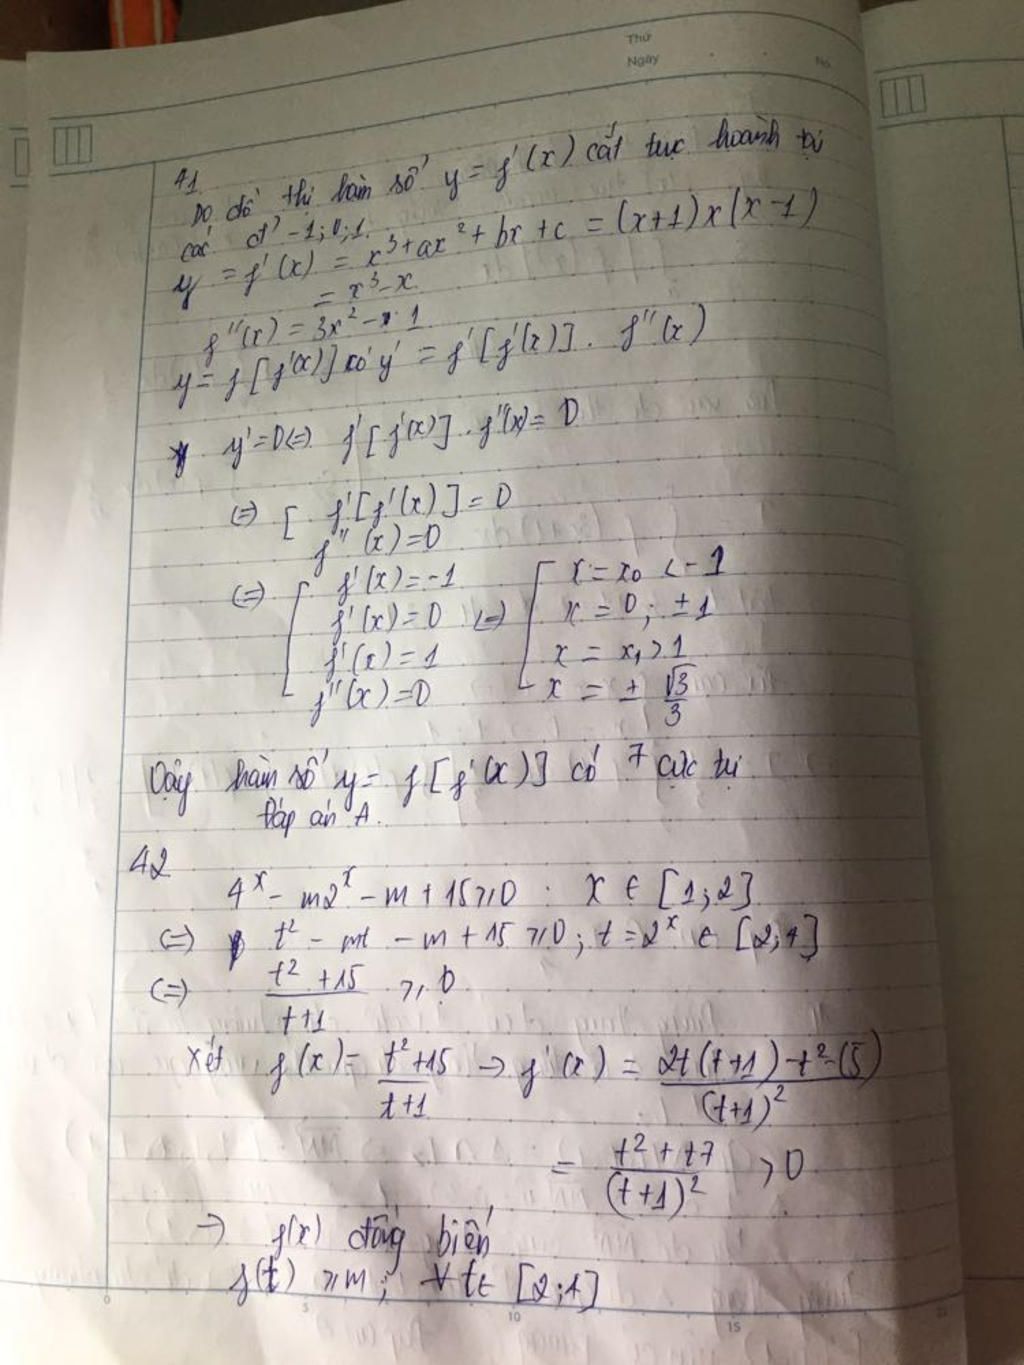 Thứ
Ngày No.
41
Do đồ thị hàm số y = f'(x) cắt trục hoành tại
các đ' -1; 0; 1.
y = f'(x) = x³ + ax² + bx + c = (x+1)x(x-1)
= x³ - x.
f''(x) = 3x² - 1
y = f[f'(x)] có y' = f'[f'(x)]. f''(x)
y' = 0 (=) f'[f'(x)] . f''(x) = 0
(=) [ f'[f'(x)] = 0
f''(x) = 0
(=) [ f'(x) = -1 [ x = x₀ < -1
f'(x) = 0 (=) x = 0; ±1
f'(x) = 1 x = x₁ > 1
f''(x) = 0 x = ± √3/3
Vậy hàm số y = f[f'(x)] có 7 cực trị
Đáp án A.
42
4ˣ - m2ˣ - m + 15 ≥ 0 : x ∈ [1; 2]
(=) t² - mt - m + 15 ≥ 0; t = 2ˣ ∈ [2; 4]
(=) (t² + 15)/(t+1) ≥ 0
Xét f(x) = (t² + 15)/(t+1) → f'(x) = (2t(t+1) - t² - 15)/(t+1)²
= (t² + t7)/(t+1)² > 0
→ f(x) đồng biến
f(t) ≥ m; ∀ t ∈ [2; 4]
0 5 10 15